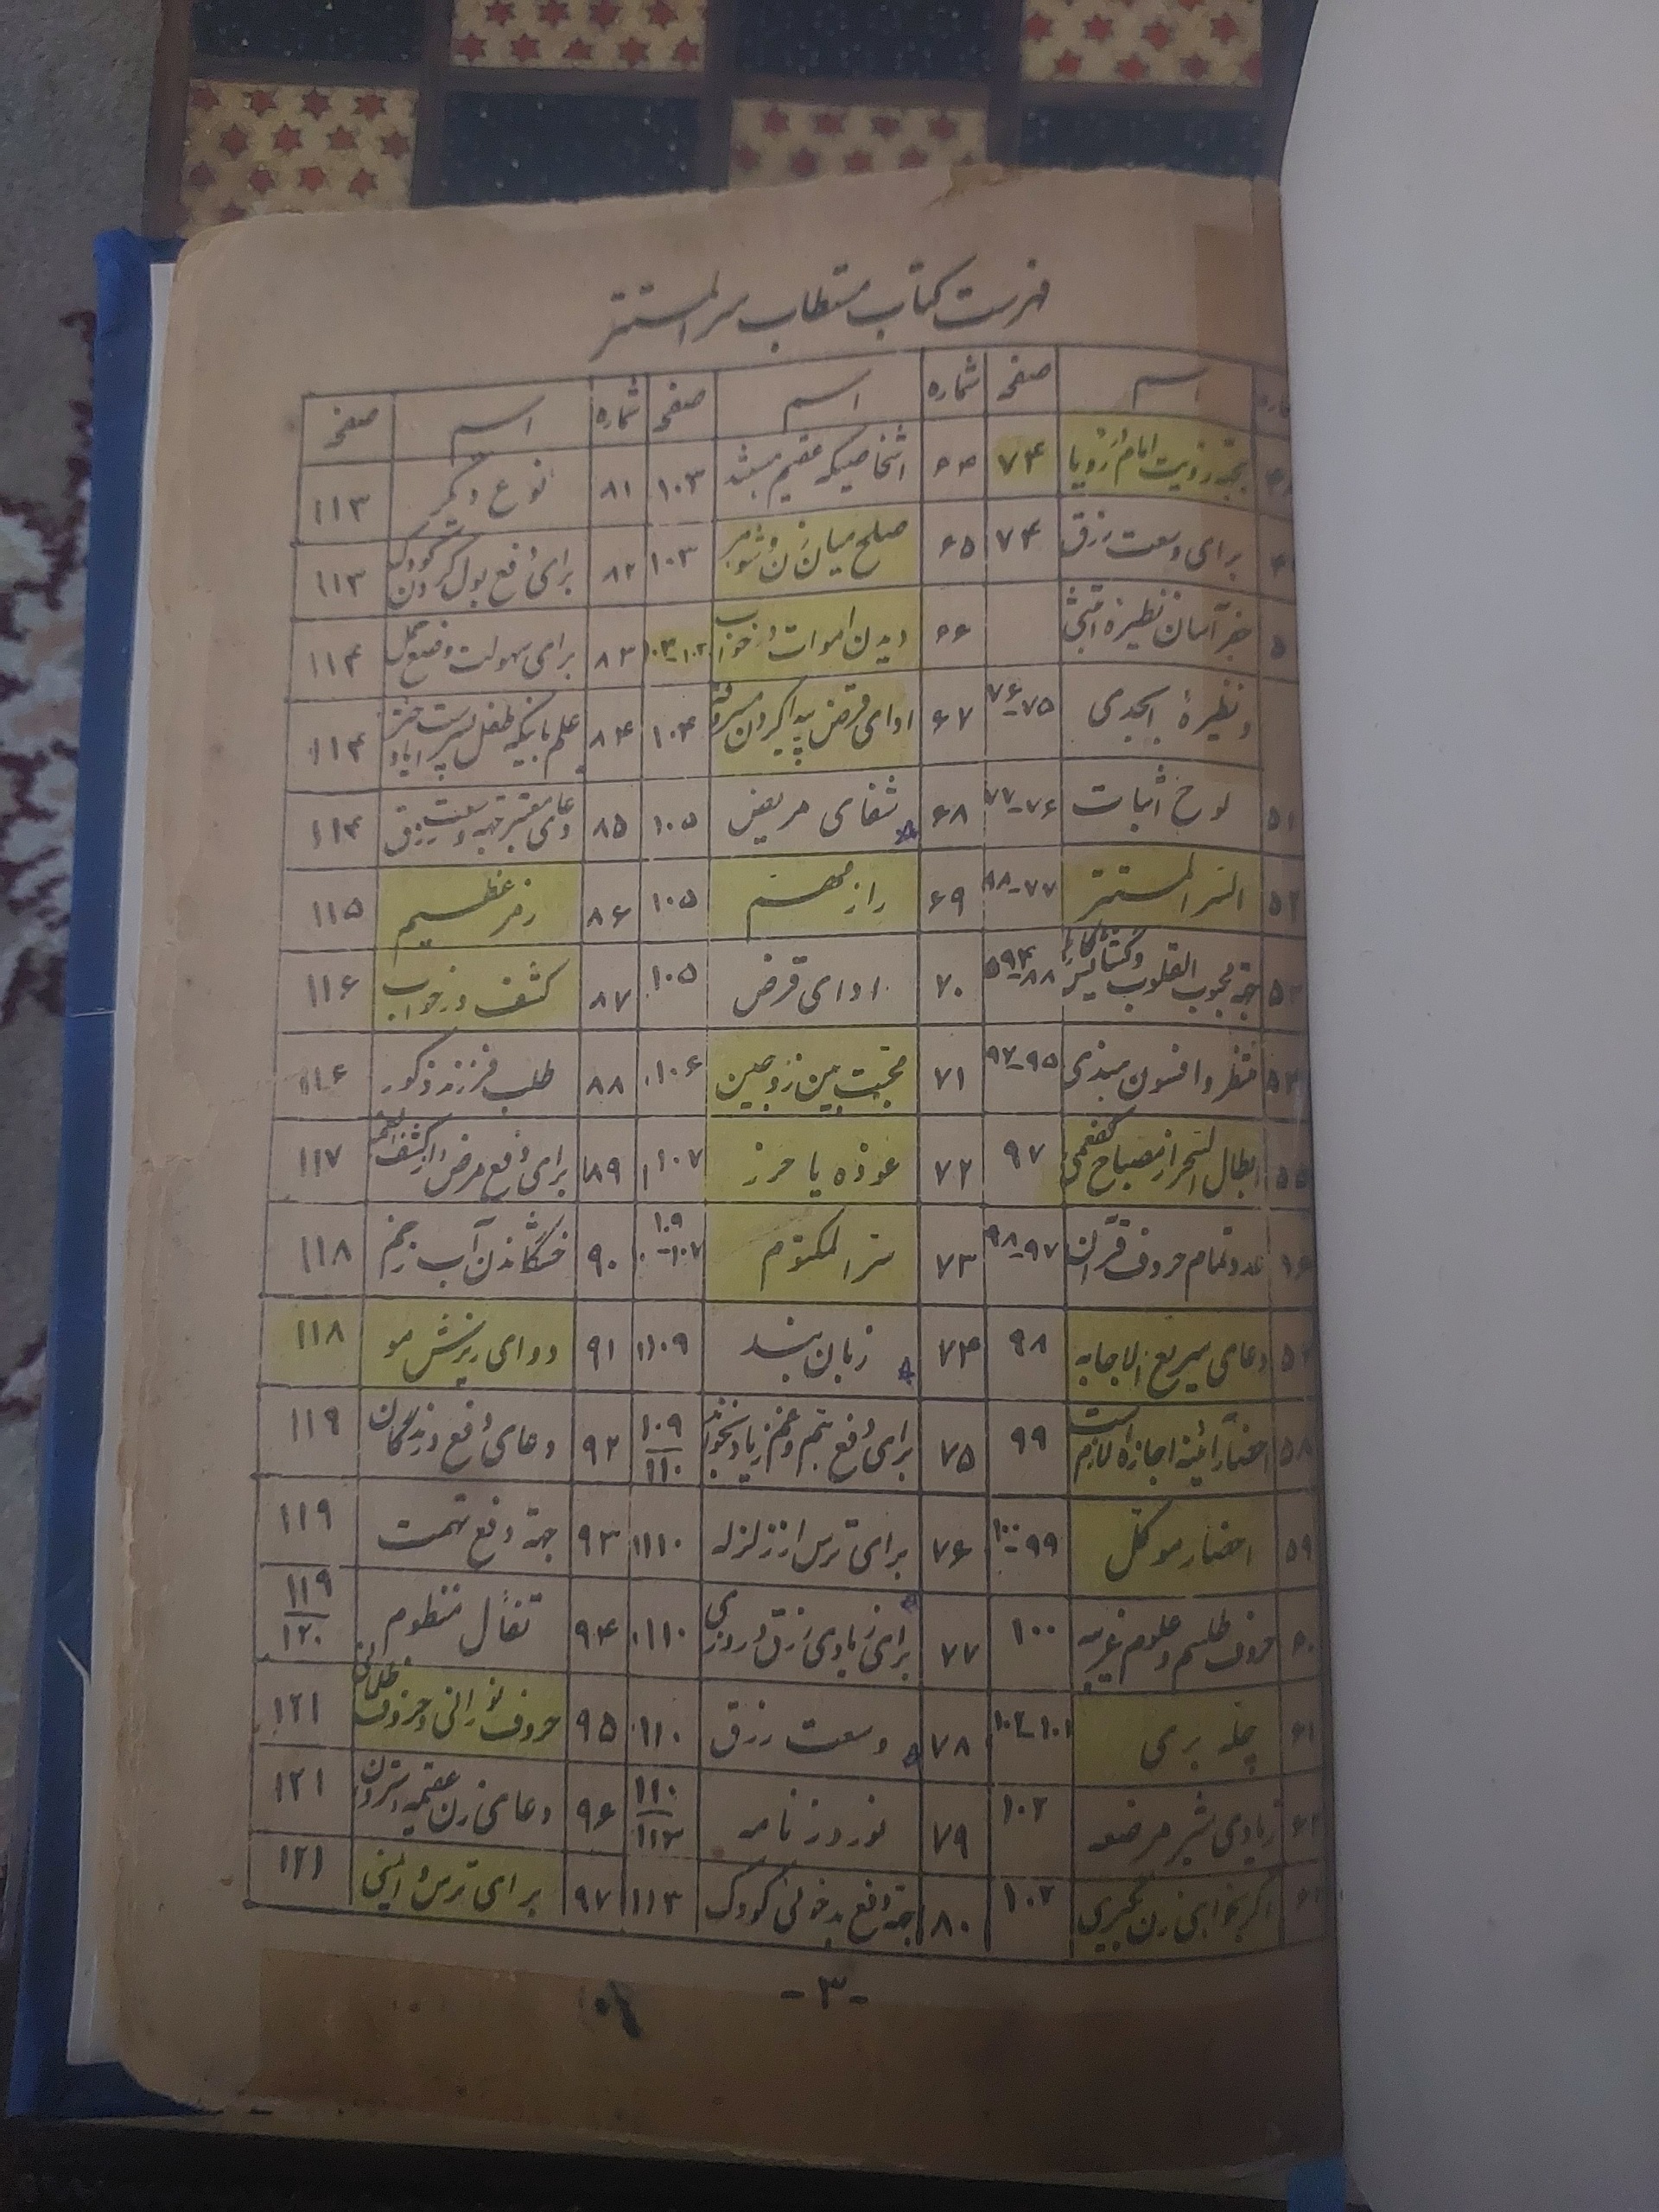 فهرست کتاب مستطاب سر المستتر
اسم صفحه شماره اسم صفحه شماره اسم صفحه
رؤیت امام در رؤیا ۷۴ ۶۴ اشخاصیکه عقیم میباشند ۱۰۳ ۸۱ نوع دیگر ۱۱۳
برای وسعت رزق ۷۴ ۶۵ صلح میان زن و شوهر ۱۰۳ ۸۲ برای رفع بول کردن کودک ۱۱۳
جفر آسان نظیره ابتثی ۶۶ دیدن اموات در خواب ۱۰۲-۱۰۳ ۸۳ برای سهولت وضع حمل ۱۱۴
و نظیرهٔ ابجدی ۷۵-۷۶ ۶۷ ادای قرض پیدا کردن مسروقه ۱۰۴ ۸۴ علم باینکه طفل پسر است دختر ۱۱۴
۵۱ لوح اثبات ۷۶-۷۷ ۶۸ شفای مریض ۱۰۵ ۸۵ دعای معتبر جهة وسعت رزق ۱۱۴
۵۲ السر المستتر ۷۷-۸۸ ۶۹ راز مهم ۱۰۵ ۸۶ رمز عظیم ۱۱۵
۵۳ جهة محبوب القلوب ۷۰ ادای قرض ۱۰۵ ۸۷ کشف در خواب ۱۱۶
۵۴ منظر و افسون بندی ۹۵-۹۷ ۷۱ محبت بین زوجین ۱۰۶ ۸۸ طلب فرزند ذکور ۱۱۶
۵۵ ابطال السحر از مصباح کفعمی ۹۷ ۷۲ عوذه یا حرز ۱۰۷ ۸۹ برای رفع مرض از کشف ۱۱۷
۵۶ عدد تمام حروف قرآن ۹۷-۹۸ ۷۳ سر المکتوم ۱۰۷-۱۰۹ ۹۰ خشکاندن آب زخم ۱۱۸
۵۷ دعای سریع الاجابه ۹۸ ۷۴ زبان بند ۱۰۹ ۹۱ دوای ریزش مو ۱۱۸
۵۸ احضار آئینه اجازه لازم است ۹۹ ۷۵ برای رفع هم و غم زیاد بخواند ۱۰۹ ۱۱۰ ۹۲ دعای رفع درندگان ۱۱۹
۵۹ احضار موکل ۹۹-۱۰۰ ۷۶ برای ترس از زلزله ۱۱۰ ۹۳ جهة دفع تهمت ۱۱۹
۶۰ حروف طلسم و علوم غریبه ۱۰۰ ۷۷ برای زیادی رزق و روزی ۱۱۰ ۹۴ تفأل منظوم ۱۱۹ ۱۲۰
۶۱ چله بری ۱۰۱-۱۰۲ ۷۸ وسعت رزق ۱۱۰ ۹۵ حروف نورانی و حروف ظلمانی ۱۲۱
۶۲ زیادی شیر مرضعه ۱۰۲ ۷۹ نوروز نامه ۱۱۰ ۱۱۳ ۹۶ دعای زن عقیمه و سترون ۱۲۱
۶۳ اگر بخواهی زن بگیری ۱۰۲ ۸۰ جهة رفع بدخوئی کودک ۱۱۳ ۹۷ برای ترس و ایمنی ۱۲۱
-۳-